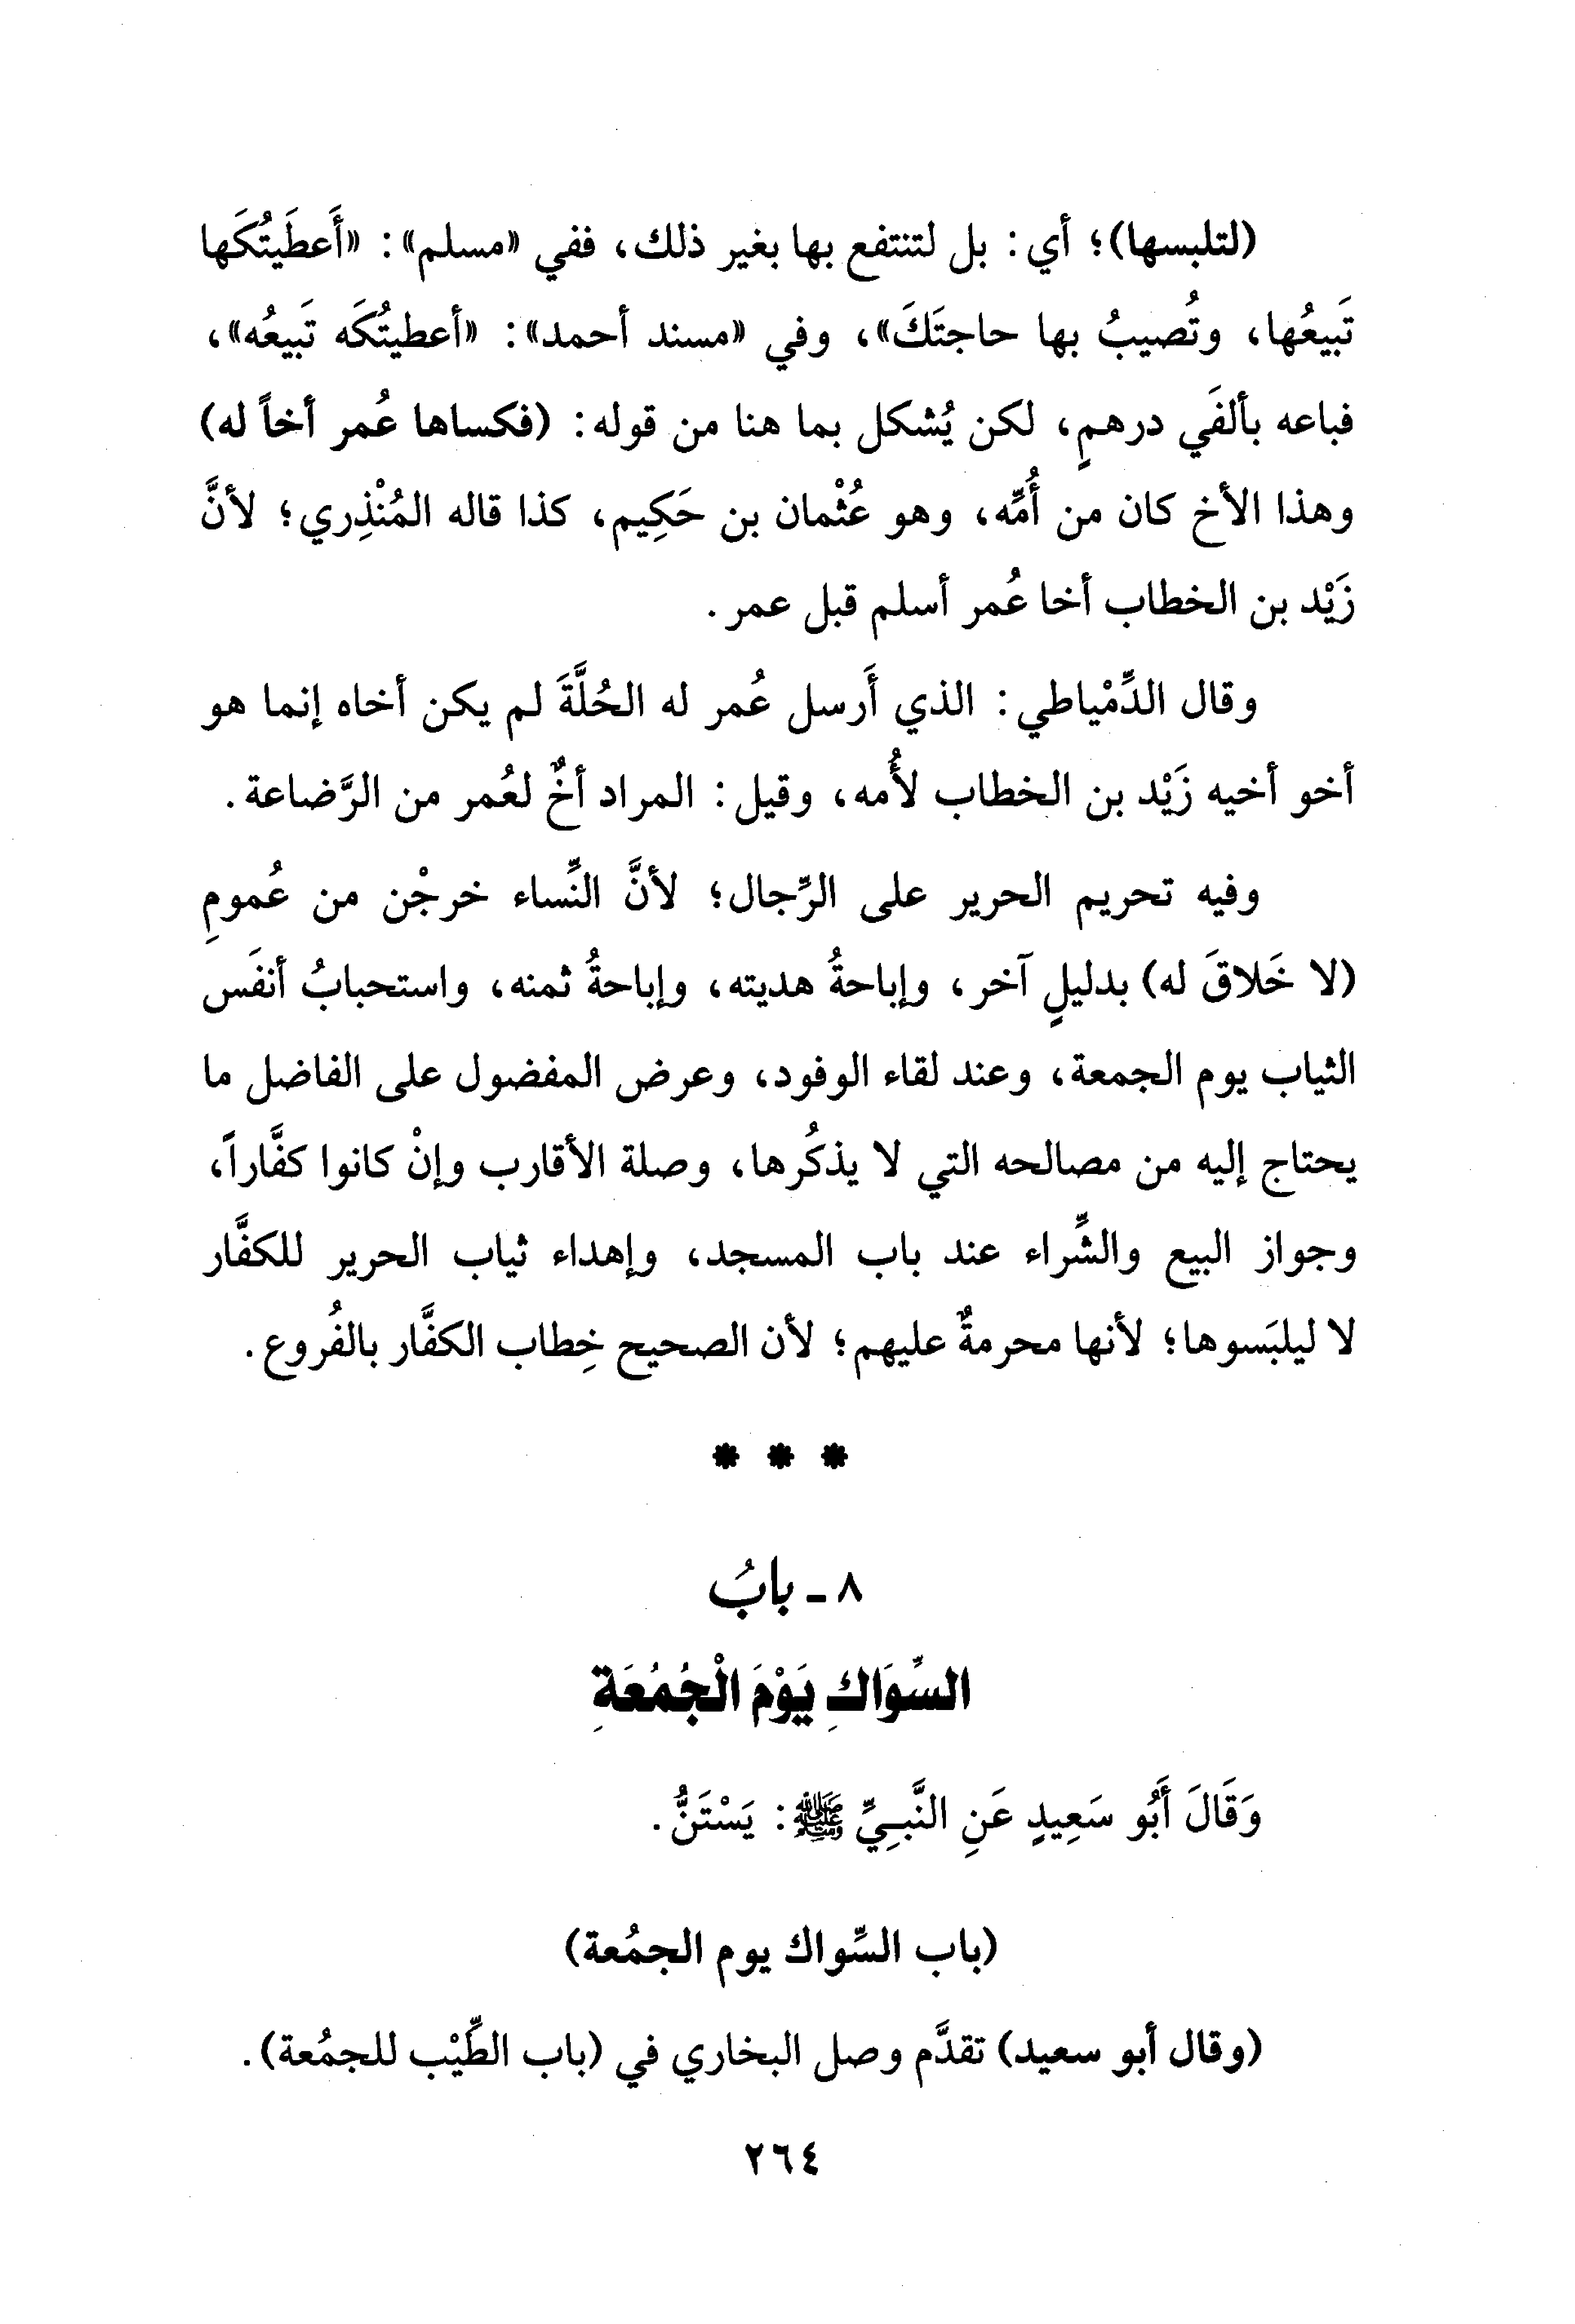 (لتلبسها)؛ أي: بل لتنتفع بها بغير ذلك، ففي «مسلم»: «أَعطَيتُكَها
تَبيعُها، وتُصيبُ بها حاجتَكَ»، وفي «مسند أحمد»: «أعطيتُكَه تَبيعُه»،
فباعه بألفَي درهمٍ، لكن يُشكل بما هنا من قوله: (فكساها عُمر أخاً له)
وهذا الأخ كان من أُمِّه، وهو عُثْمان بن حَكِيم، كذا قاله المُنْذِري؛ لأنَّ
زَيْد بن الخطاب أخا عُمر أسلم قبل عمر.
وقال الدِّمْياطي: الذي أَرسل عُمر له الحُلَّةَ لم يكن أخاه إنما هو
أخو أخيه زَيْد بن الخطاب لأُمه، وقيل: المراد أخٌ لعُمر من الرَّضاعة.
وفيه تحريم الحرير على الرِّجال؛ لأنَّ النِّساء خرجْن من عُمومِ
(لا خَلاقَ له) بدليلٍ آخر، وإباحةُ هديته، وإباحةُ ثمنه، واستحبابُ أنفَس
الثياب يوم الجمعة، وعند لقاء الوفود، وعرض المفضول على الفاضل ما
يحتاج إليه من مصالحه التي لا يذكُرها، وصلة الأقارب وإنْ كانوا كفَّاراً،
وجواز البيع والشِّراء عند باب المسجد، وإهداء ثياب الحرير للكفَّار
لا ليلبَسوها؛ لأنها محرمةٌ عليهم؛ لأن الصحيح خِطاب الكفَّار بالفُروع.
* * *
٨ - بابُ
السِّوَاكِ يَوْمَ الْجُمُعَةِ
وَقَالَ أَبُو سَعِيدٍ عَنِ النَّبِيِّ ﷺ: يَسْتَنُّ.
(باب السِّواك يوم الجمُعة)
(وقال أبو سعيد) تقدَّم وصل البخاري في (باب الطِّيْب للجمُعة).
٢٦٤